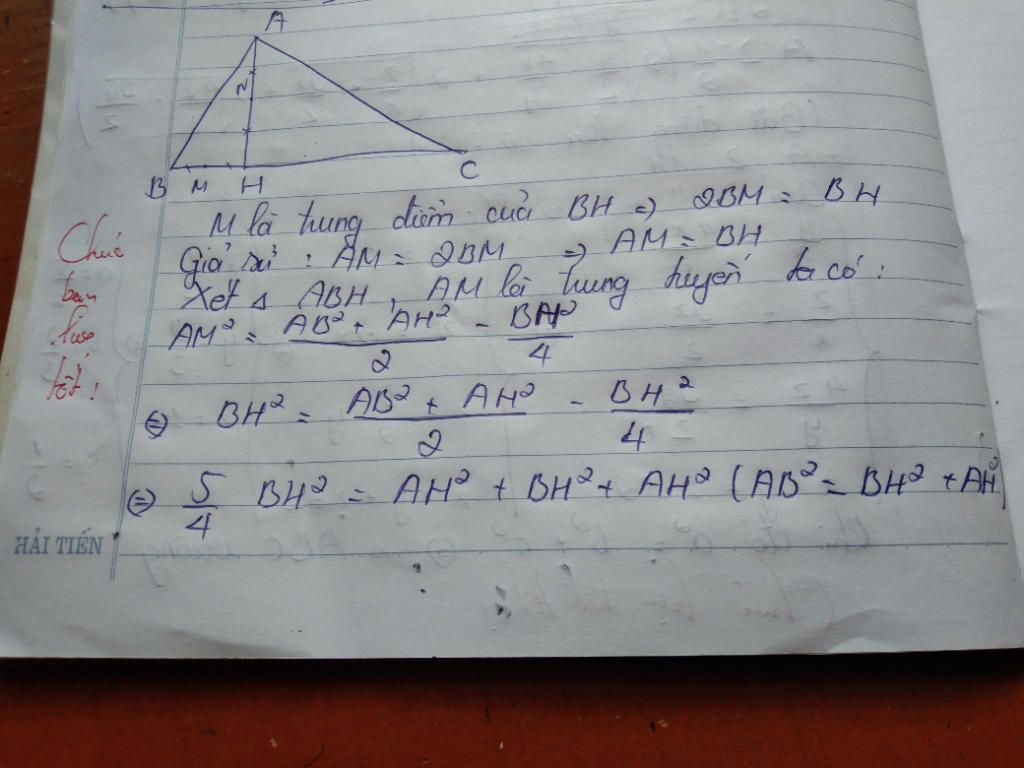 A
N
B M H C
M là trung điểm của BH => 2BM = BH
Giả sử : AM = 2BM => AM = BH
Xét Δ ABH , AM là trung tuyến ta có :
AM² = (AB² + AH²)/2 - BH²/4
⇔ BH² = (AB² + AH²)/2 - BH²/4
⇔ 5/4 BH² = AH² + BH² + AH² (AB² = BH² + AH²)
Chúc
bạn
tốt !
HẢI TIẾN